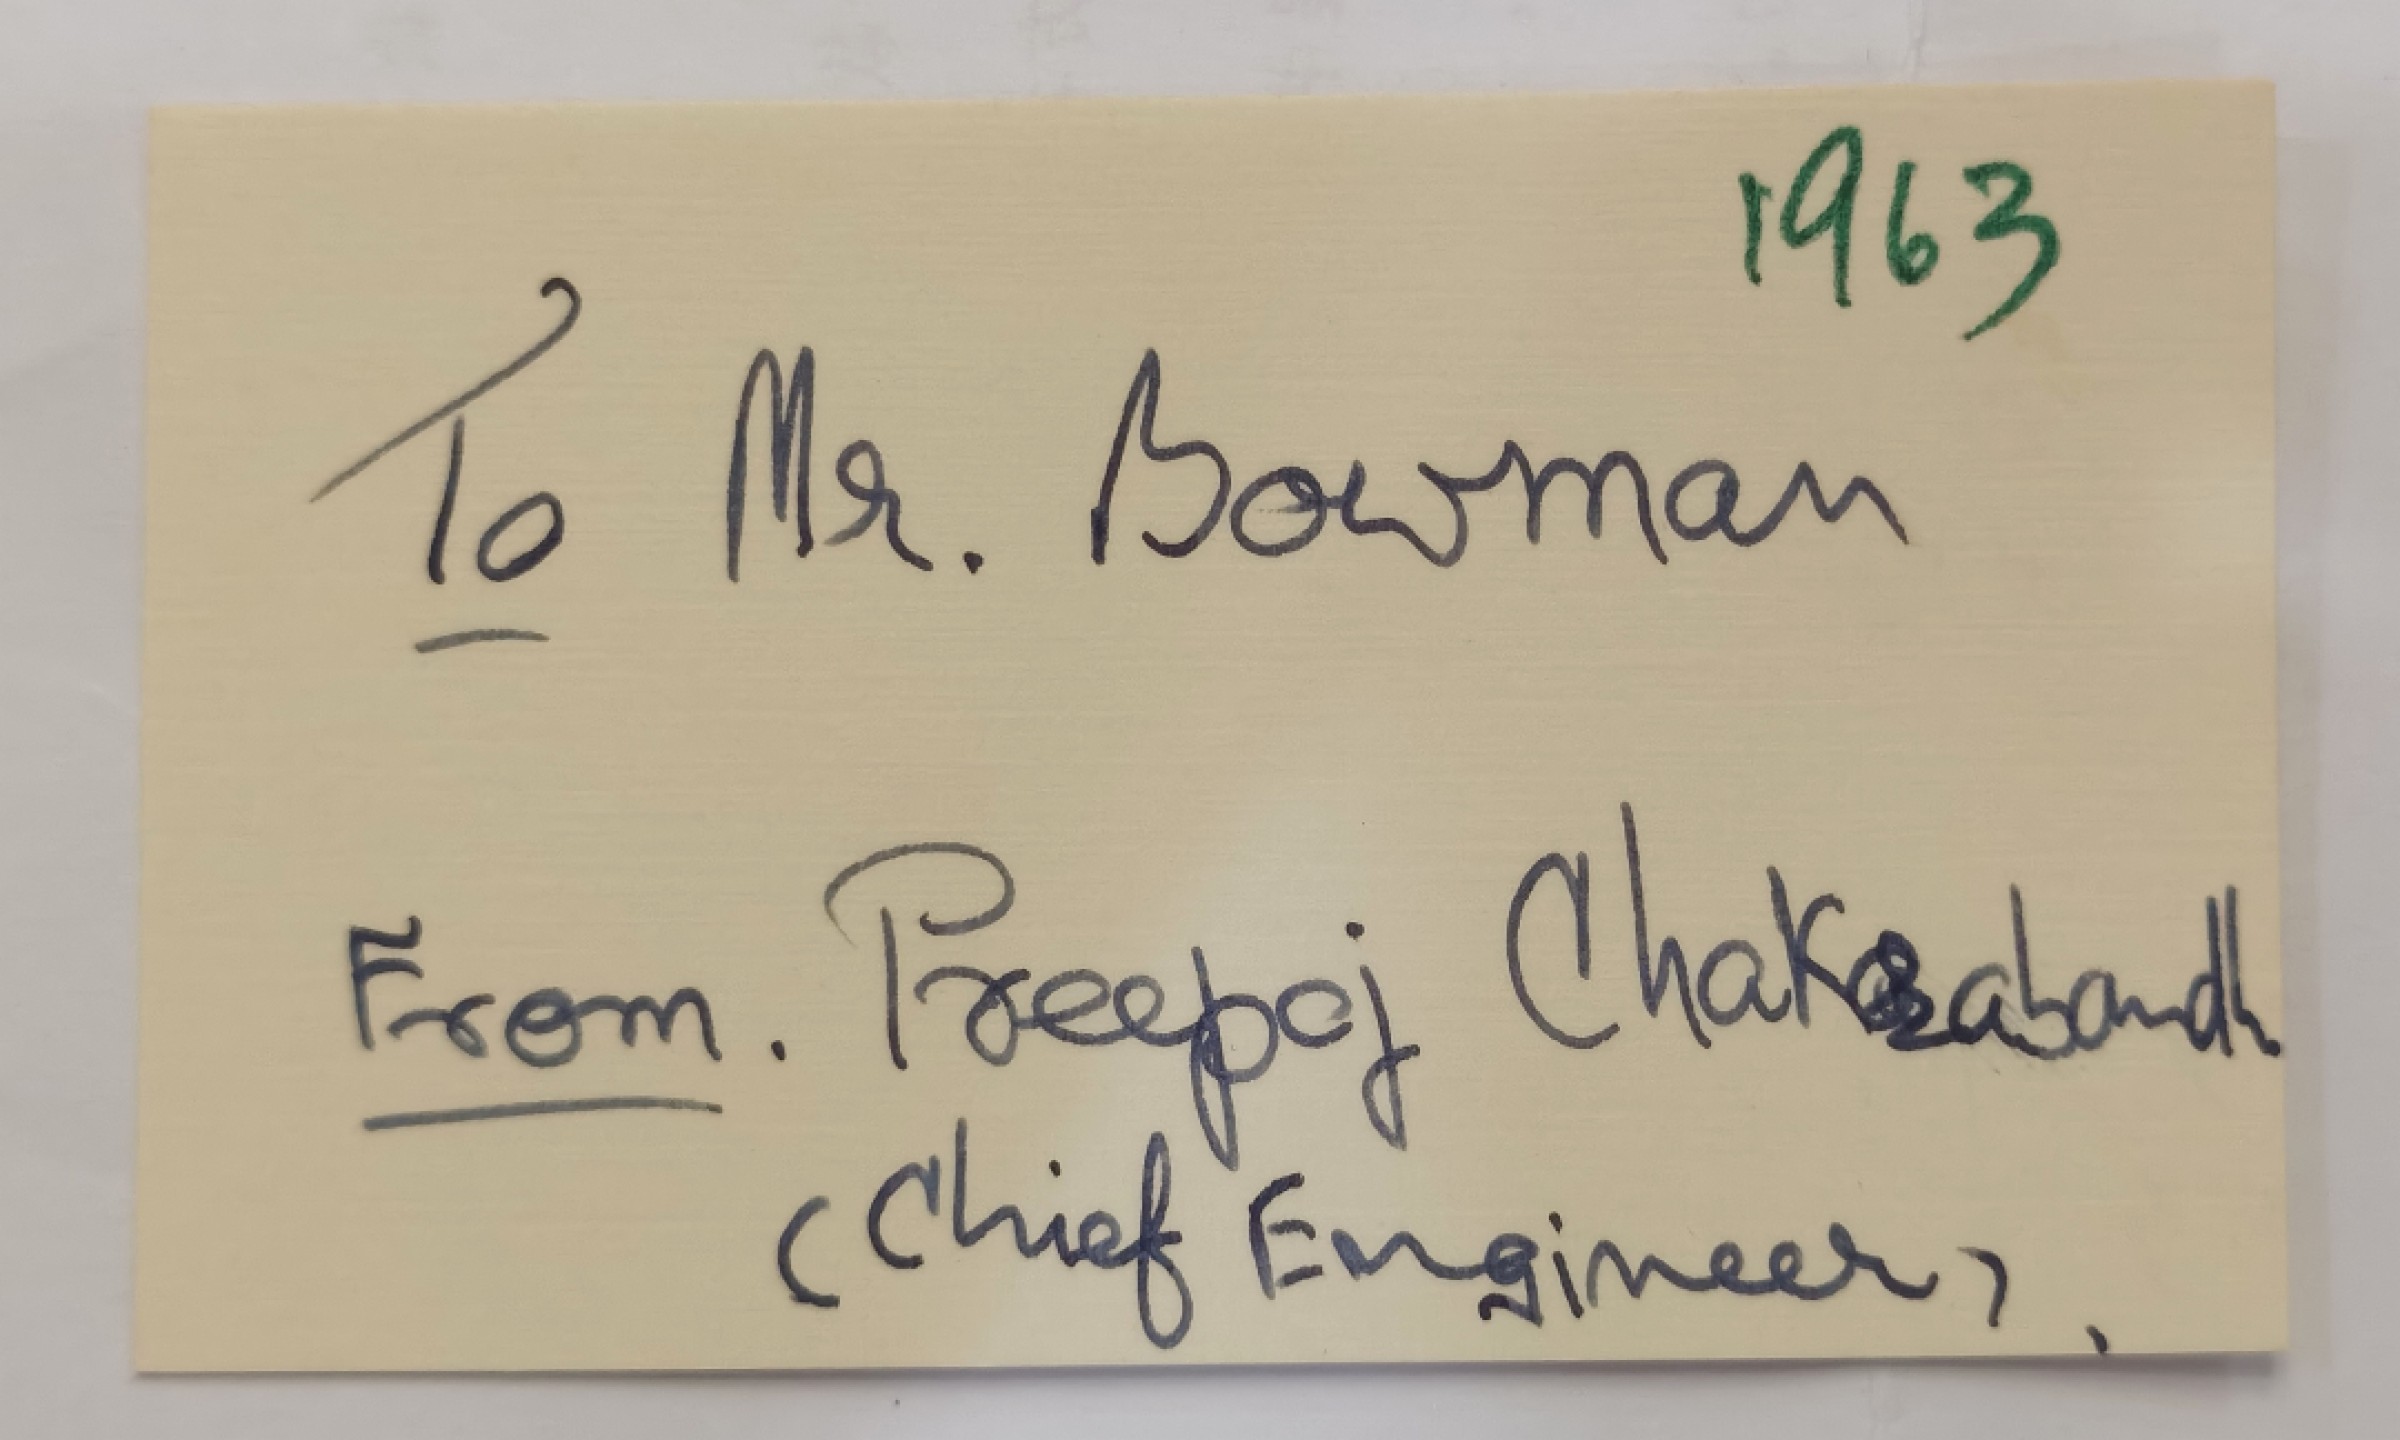 1963
To Mr. Bowman
From. Preepoj Chakrabandh
(Chief Engineer).